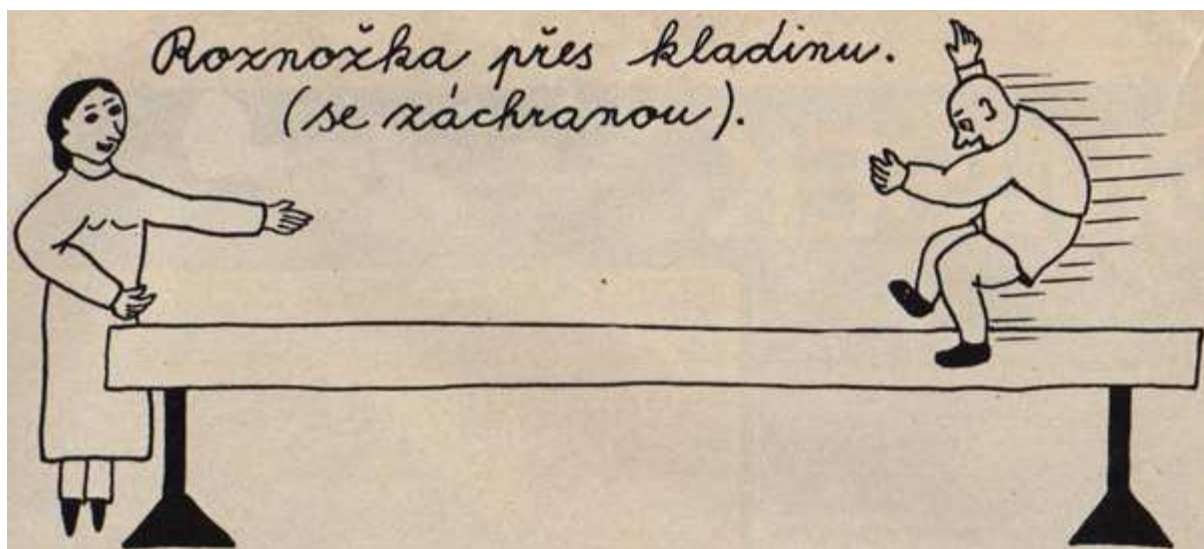 Roznožka přes kladinu.
(se záchranou).